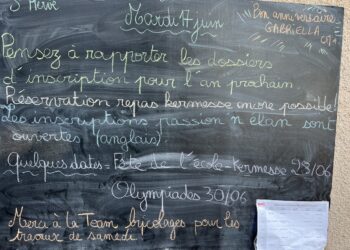 St Hervé
Mardi 17 juin
Bon anniversaire
GABRIELLA
Pensez à rapporter les dossiers
d'inscription pour l'an prochain
Réservation repas kermesse encore possible!
Les inscriptions passion'n élan sont
ouvertes (anglais)!
Quelques dates = Fête de l'école = Kermesse 28/06
Olympiades 30/06
Merci à la Team bricolages pour les
travaux de samedi!